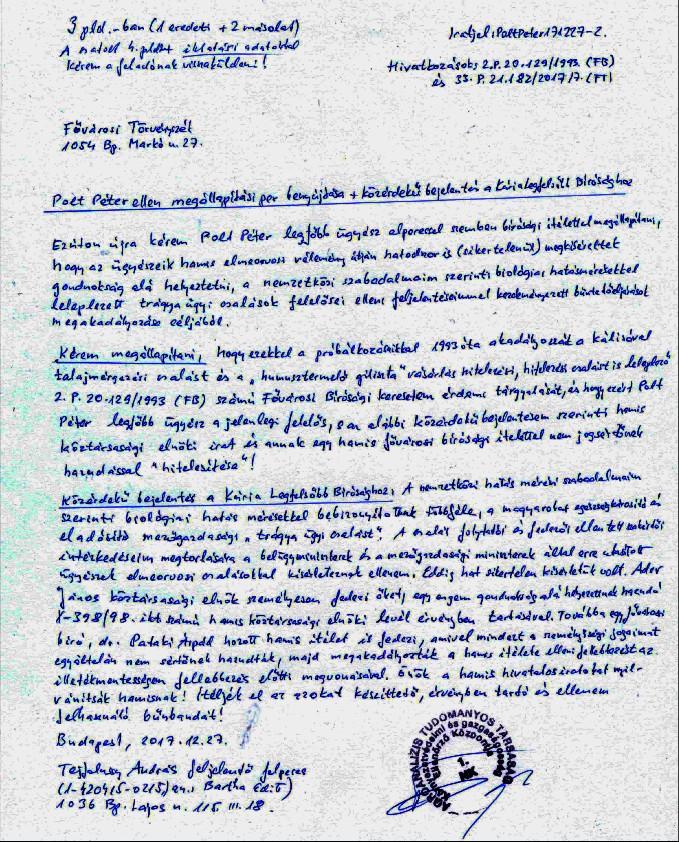 3 pld.-ban (1 eredeti + 2 másolat)
A csatolt 4. pldt iktatási adatokkal
kérem a feladónak visszaküldeni!
Iratjel: PoltPeter171227-2.
Hivatkozások: 2.P.20.129/1993. (FB)
és 33.P.21.182/2017/7. (FT)
Fővárosi Törvényszék
1054 Bp. Markó u. 27.
Polt Péter ellen megállapítási per benyújtása + közérdekű bejelentés a Kúria Legfelsőbb Bírósághoz
Ezúton újra kérem Polt Péter legfőbb ügyész alperessel szemben bírósági ítélettel megállapítani,
hogy az ügyészeik hamis elmeorvosi vélemény útján hatodszor is (sikertelenül) megkíséreltet
gondnokság alá helyeztetni, a nemzetközi szabadalmaim szerinti biológiai hatásmérésekkel
leleplezett trágya ügyi csalások felelősei elleni feljelentéseimmel kezdeményezett büntetőeljárásot
megakadályozása céljából.
Kérem megállapítani, hogy ezekkel a próbálkozásaikkal 1993 óta akadályozzák a kálisóval
talajmérgezési csalást és a "humusztermelő giliszta" vásárlás hitelezési, hitelezési csalást is leleplező
2.P.20.129/1993 (FB) számú Fővárosi Bírósági keresetem érdemi tárgyalását, és hogy ezért Polt
Péter legfőbb ügyész a jelenlegi felelős, s az alábbi közérdekű bejelentésem szerinti hamis
köztársasági elnöki irat és annak egy hamis fővárosi bírósági ítélettel nem jogsértőnek
hazudással "hitelesítése"!
Közérdekű bejelentés a Kúria Legfelsőbb Bírósághoz: A nemzetközi hatás mérési szabadalmaim
szerinti biológiai hatás mérésekkel bebizonyítottam többféle, a magyarokat egészségkárosító és
eladósító mezőgazdasági "trágya ügyi csalást". A csalás folytatói és fedezői ellen tett szakértői
intézkedéseim megtorlására a belügyminiszterek és a mezőgazdasági miniszterek által erre utasított
ügyészek elmeorvosi csalásokkal kísérleteznek ellenem. Eddig hat sikertelen kísérletük volt. Áder
János köztársasági elnök személyesen fedezi őket, egy engem gondnokság alá helyezettnek hazudó
X-398/98. ikt. számú hamis köztársasági elnöki levél érvényben tartásával. Továbbá egy fővárosi
bíró, dr. Pataki Árpád hozott hamis ítélet is fedezi, amivel mindezt a személyiségi jogaimat
egyáltalán nem sértőnek hazudták, majd megakadályozták a hamis ítélete elleni fellebbezést az
illetékmentességem fellebbezés előtti megvonásával. Önök a hamis hivatalos iratokat nyil-
vánítsák hamisnak! Ítéljék el az azokat készíttető, érvényben tartó és ellenem
felhasználó bűnbandát!
Budapest, 2017.12.27.
Tejfalussy András feljelentő felperes
(1-420415-0215) an.: Bartha Edit)
1036 Bp. Lajos u. 115. III. 18.
AGROANALÍZIS TUDOMÁNYOS TÁRSASÁG
Környezetvédelmi és gazdaságosság
Ellenőrző Központja
1.